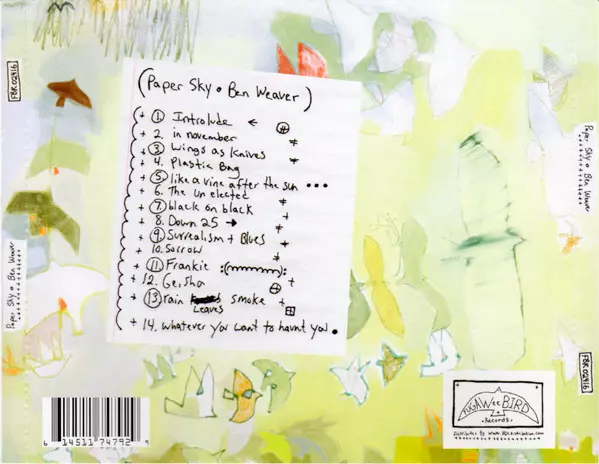 (Paper Sky • Ben Weaver)
1. Introlude
2. in november
3. Wings as Knives
4. Plastic Bag
5. like a vine after the sun ...
6. The Un elected
7. black on black
8. Down 25 →
9. Surrealism + Blues
10. Sorrow
11. Frankie
12. Geisha
13. rain smoke
Leaves
14. whatever you want to haunt you.
FBR02416
Paper Sky • Ben Weaver
Paper Sky • Ben Weaver
FBR02416
6 14511 74792 9
FUGAWeeBIRD
Records
Distributed by